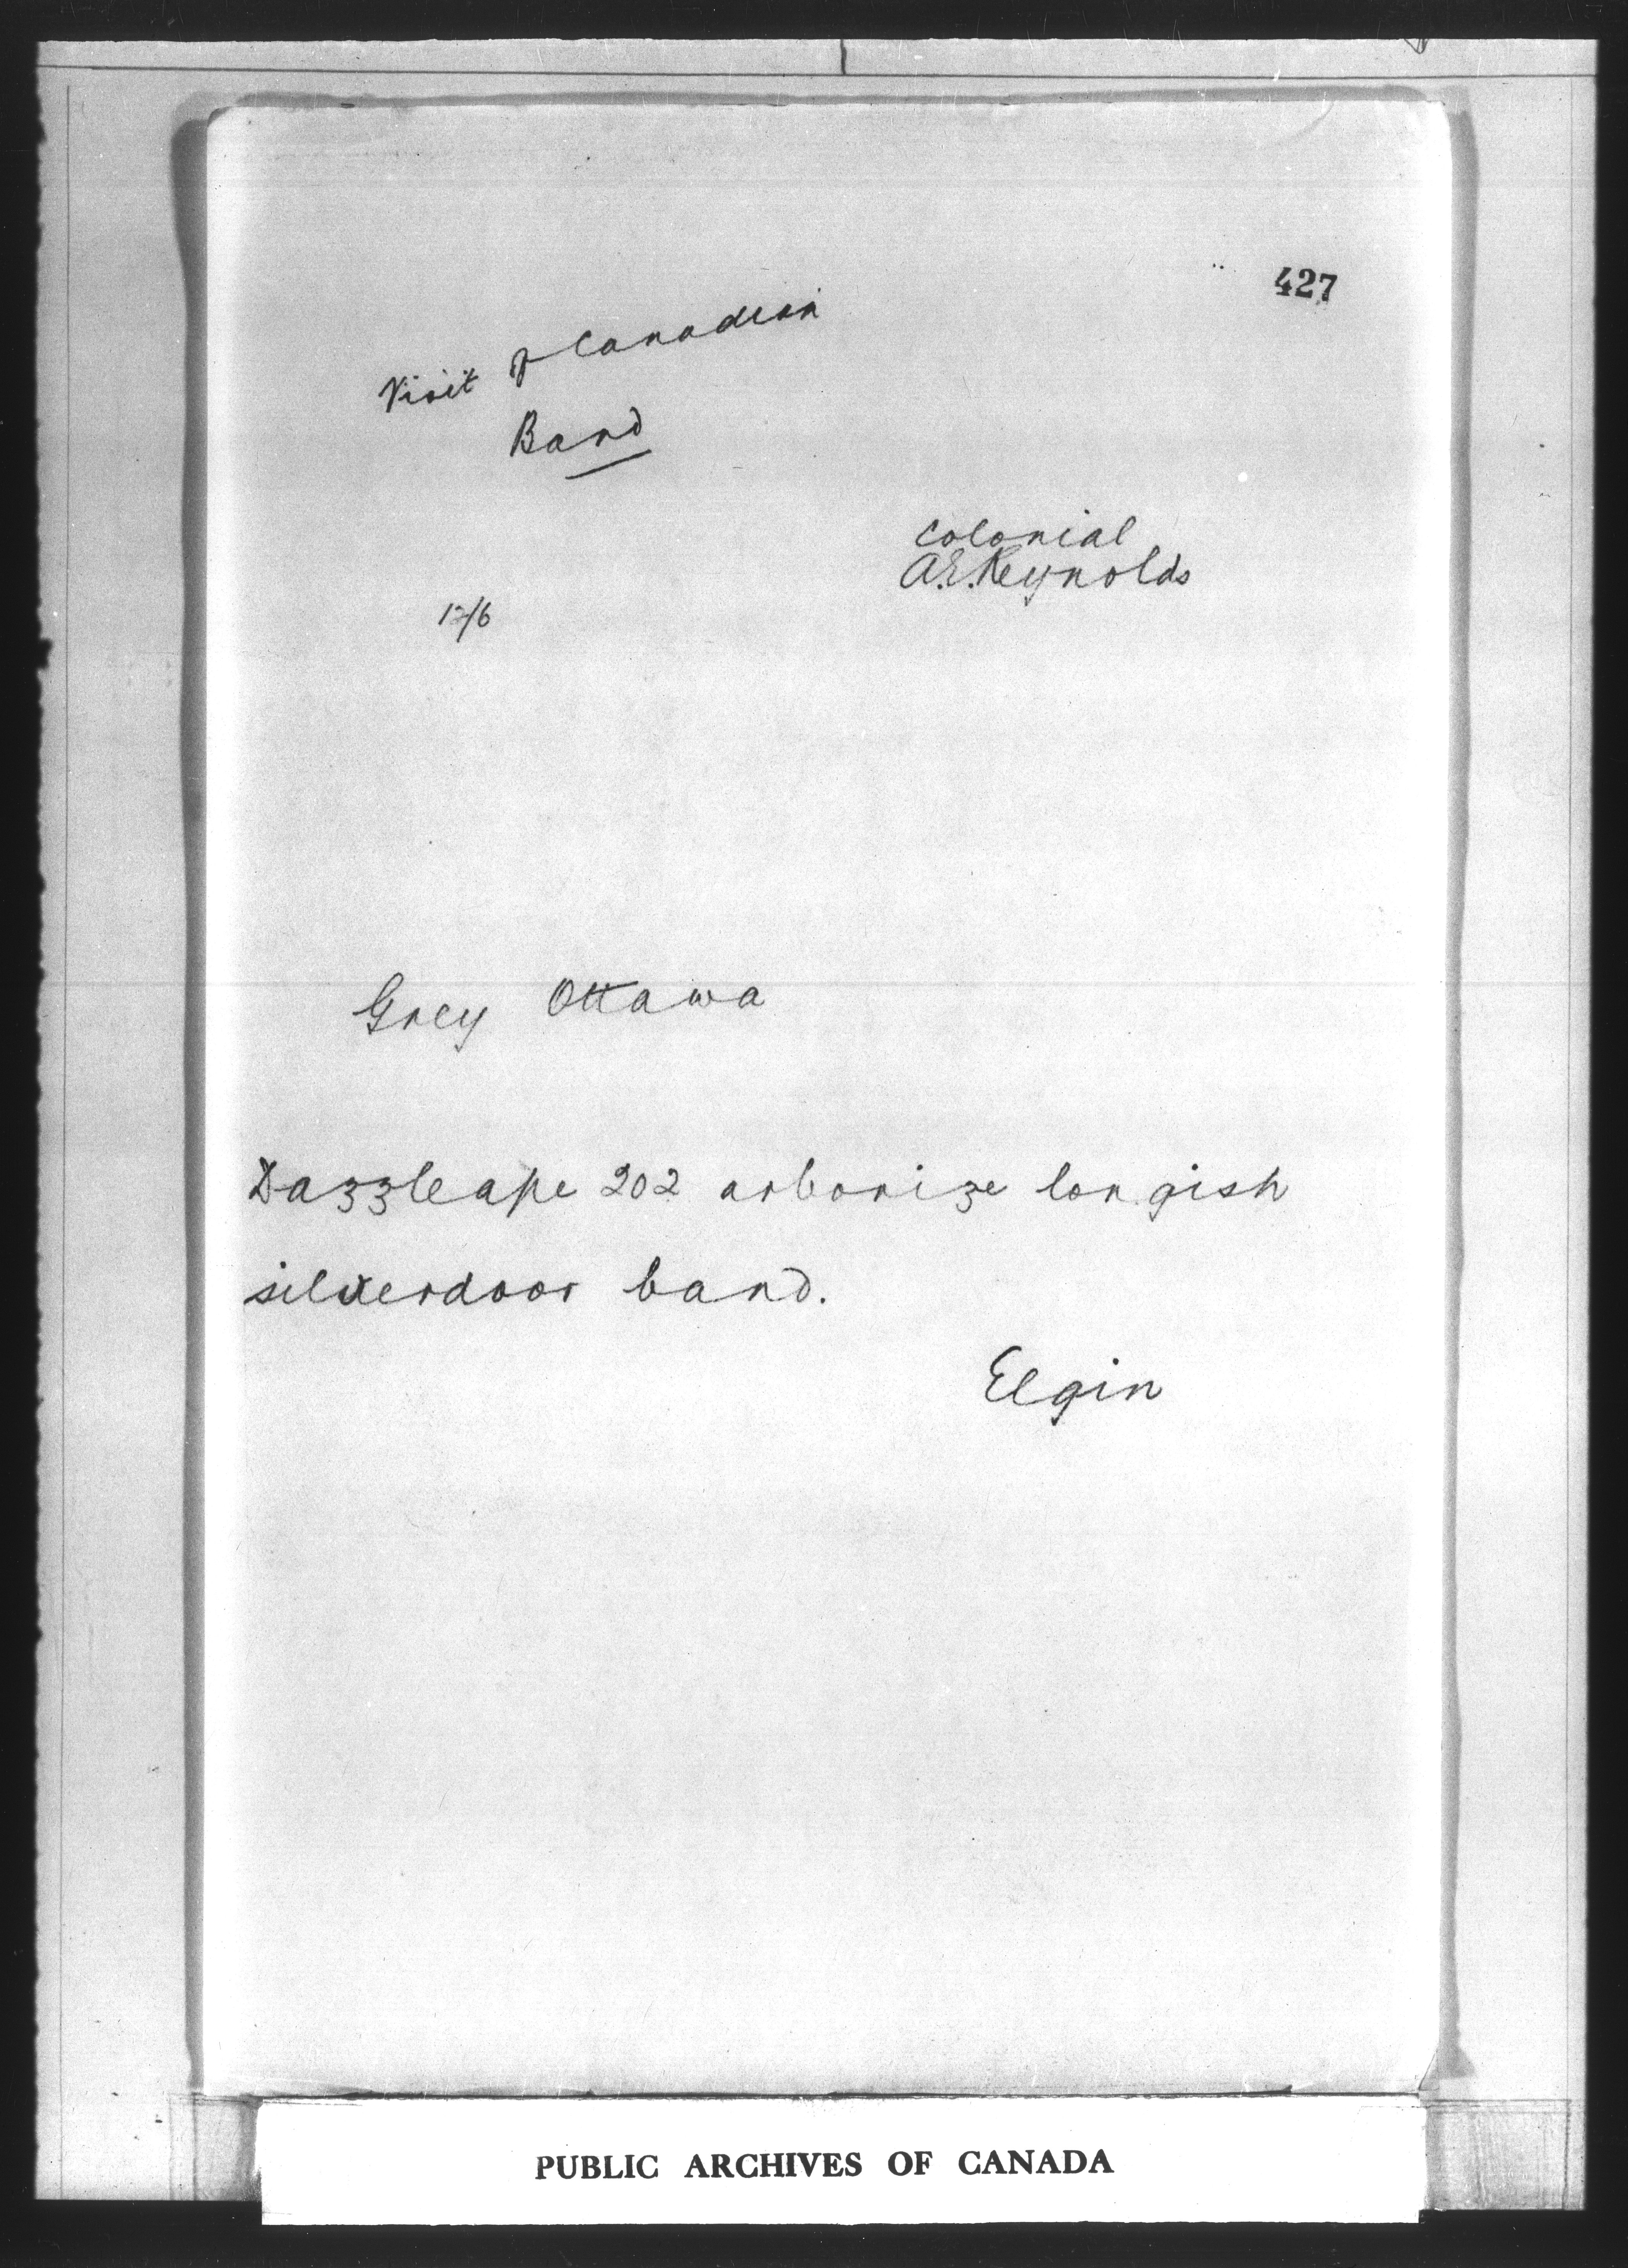 427
Visit of Canadian
Band
Colonial
A.E. Reynolds
12/6
Grey Ottawa
Dazzleape 202 arborize longish
silverdoor band.
Elgin
PUBLIC ARCHIVES OF CANADA